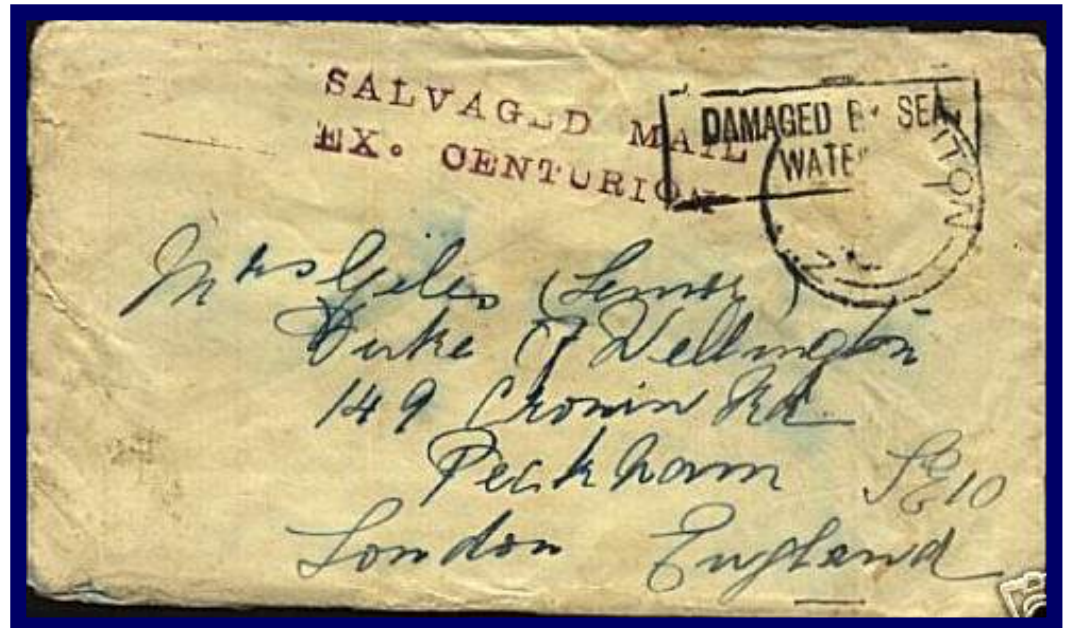 SALVAGED MAIL
EX. CENTURION
DAMAGED BY SEA
WATER
ITON
N
Mrs Giles (Senior)
Duke of Wellington
149 Cronin Rd
Peckham
SE10
London England